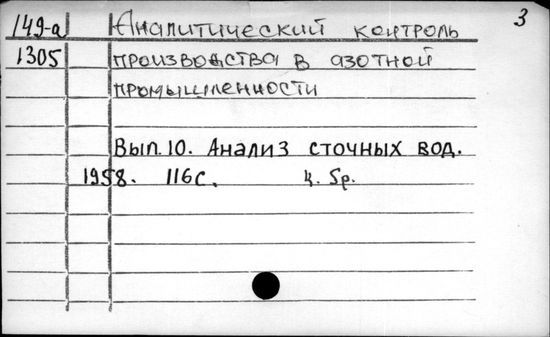 3
149-а Аналитический контроль
1305 производства в азотной
промышленности
Вып.10. Анализ сточных вод.
1958. 116с. ц. 5р.